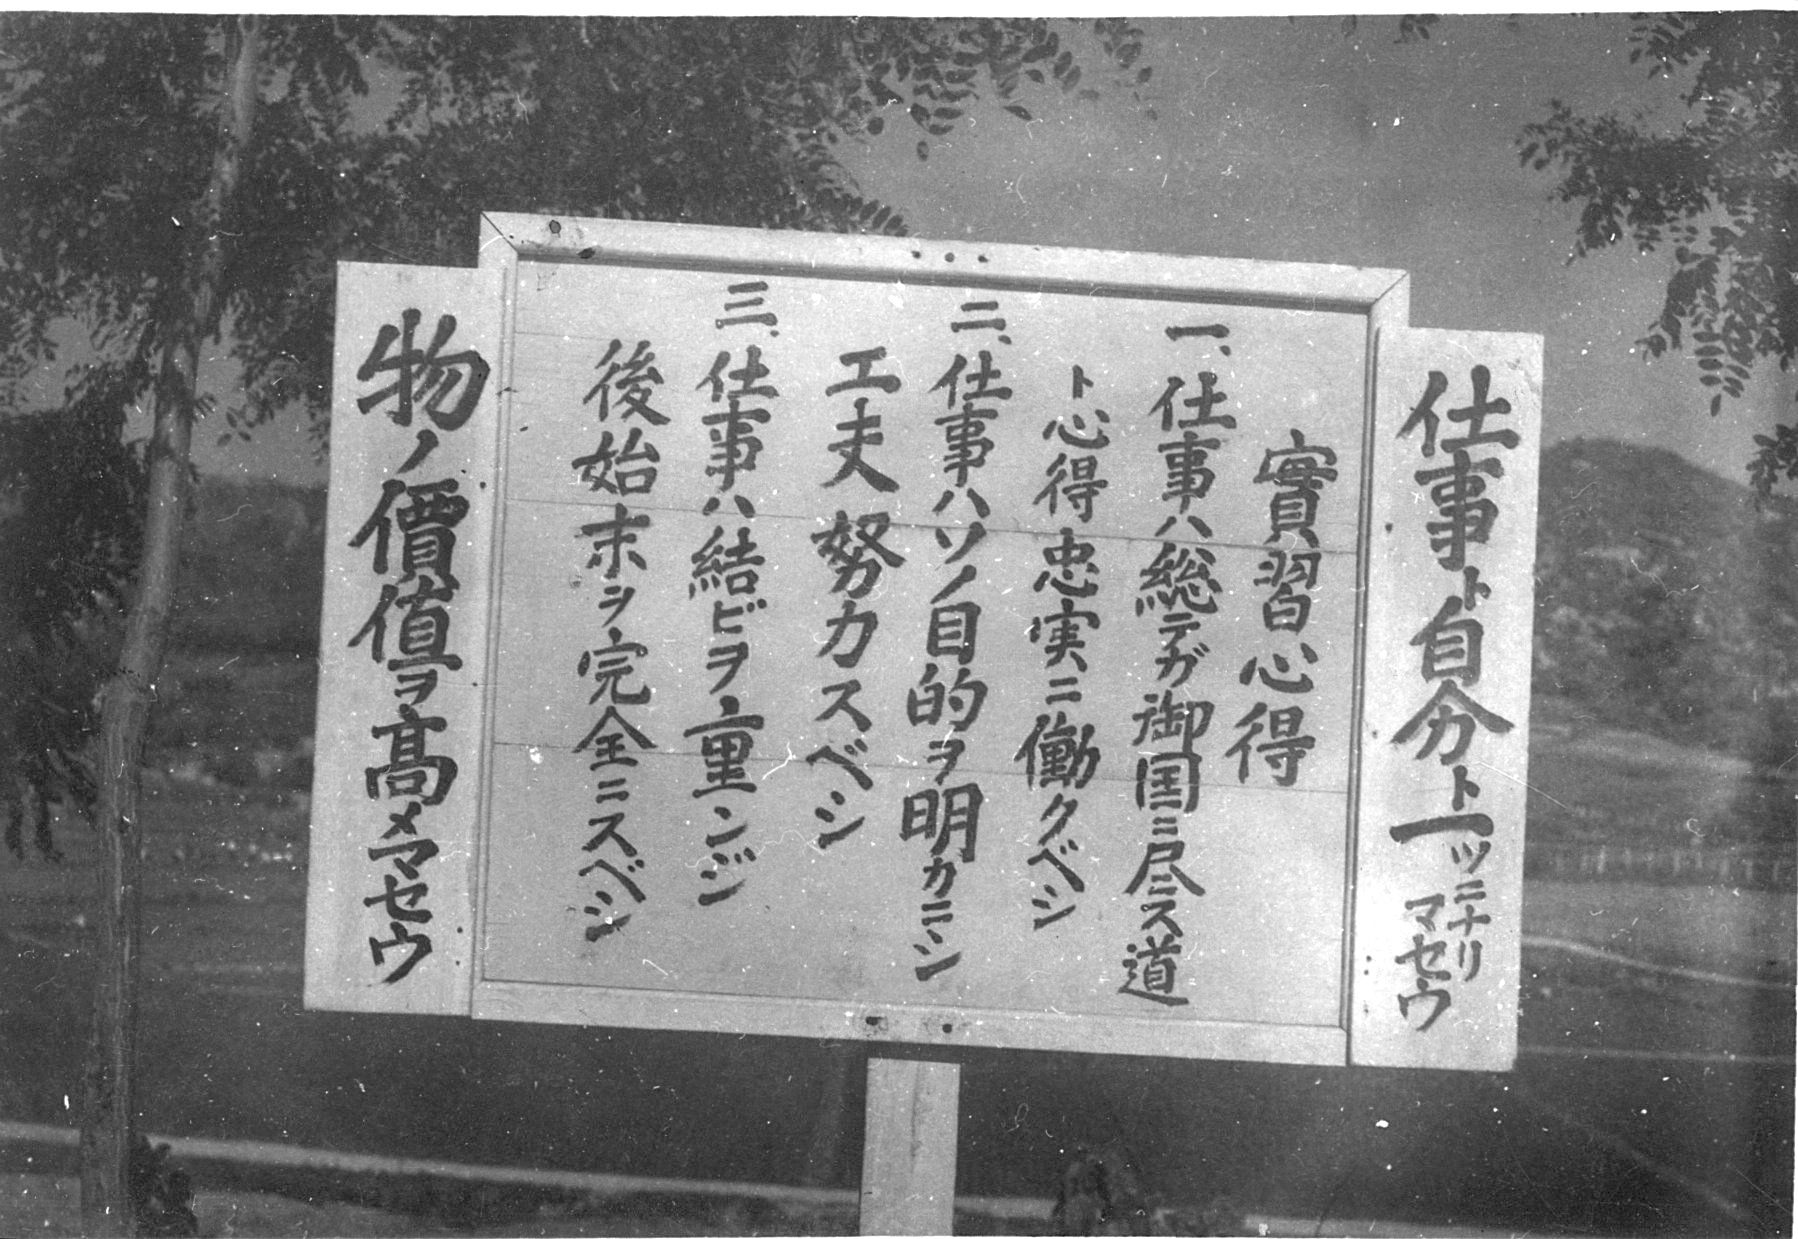 仕事ト自分ト一ツニナリ
マセウ
實習心得
一、仕事ハ総テガ御国ニ尽ス道
ト心得忠実ニ働クベシ
二、仕事ハソノ目的ヲ明カニシ
工夫努力スベシ
三、仕事ハ結ビヲ重ンジ
後始末ヲ完全ニスベシ
物ノ價値ヲ高メマセウ